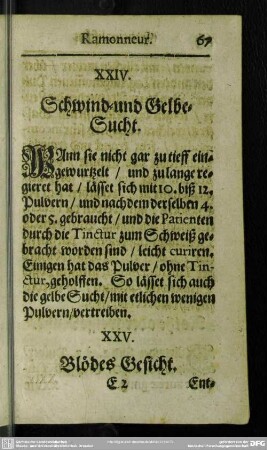 Ramonneur. 67
XXIV.
Schwind-und Gelbe-
Sucht.
WAnn sie nicht gar zu tieff ein-
gewurtzelt / und zu lange re-
gieret hat / lässet sich mit 10. biß 12.
Pulvern / und nach dem derselben 4.
oder 5. gebraucht / und die Patienten
durch die Tinctur zum Schweiß ge-
bracht worden sind / leicht curiren.
Einigen hat das Pulver / ohne Tin-
ctur, geholffen. So lässet sich auch
die gelbe Sucht / mit etlichen wenigen
Pulvern / vertreiben.
XXV.
Blödes Gesicht.
E 2 Ent-